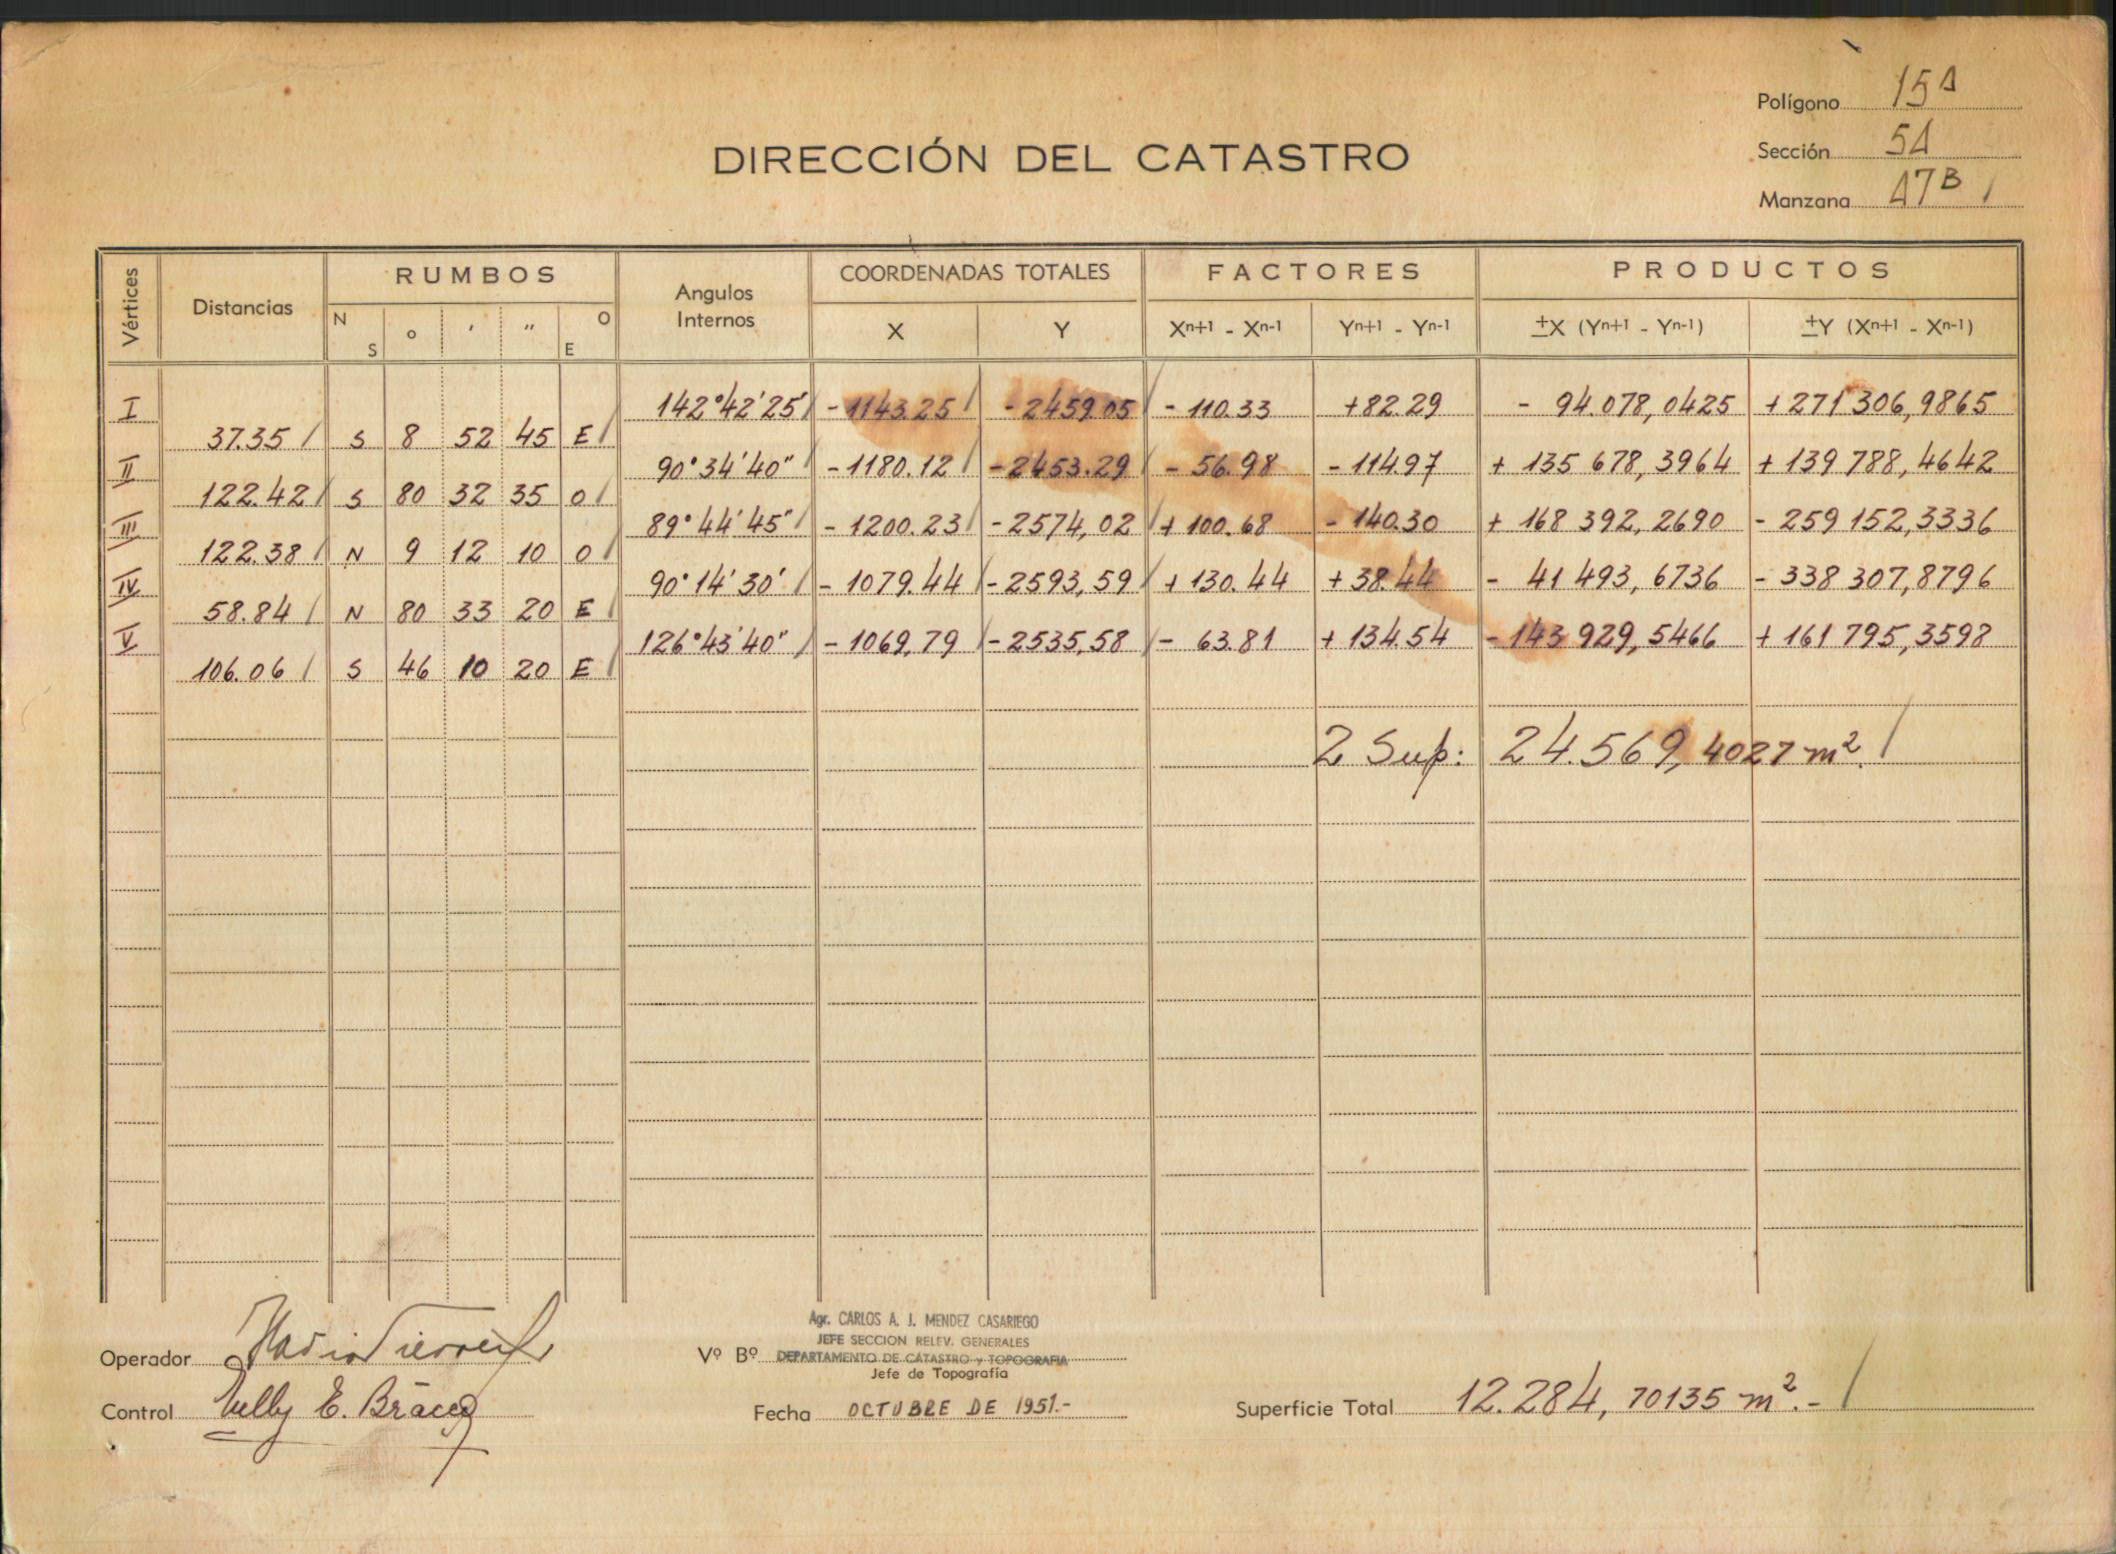 Polígono 15A
Sección 5A
Manzana 47B /
DIRECCIÓN DEL CATASTRO
Vértices Distancias RUMBOS Angulos Internos COORDENADAS TOTALES FACTORES PRODUCTOS
N S o ' " O E X Y Xn+1 - Xn-1 Yn+1 - Yn-1 ±X (Yn+1 - Yn-1) ±Y (Xn+1 - Xn-1)
I 142°42'25" / - 1143.25 / - 2459.05 / - 110.33 +82.29 - 94.078,0425 + 271 306,9865
37.35 / S 8 52 45 E /
II 90°34'40" - 1180.12 / - 2453.29 / - 56.98 - 114.97 + 135 678,3964 + 139 788,4642
122.42 / S 80 32 35 O /
III 89°44'45" / - 1200.23 / - 2574,02 / + 100.68 - 140.30 + 168 392,2690 - 259 152,3336
122.38 / N 9 12 10 O /
IV 90°14'30" / - 1079.44 / - 2593,59 / + 130.44 + 38.44 - 41 493,6736 - 338 307,8796
58.84 / N 80 33 20 E /
V 126°43'40" / - 1069,79 / - 2535,58 / - 63.81 + 134.54 - 143 929,5466 + 161 795,3598
106.06 / S 46 10 20 E /
2 Sup: 24.569,4027 m². /
Agr. CARLOS A. J. MENDEZ CASARIEGO
JEFE SECCION RELEV. GENERALES
Operador Vº Bº DEPARTAMENTO DE CATASTRO y TOPOGRAFIA
Jefe de Topografía
Control Nelly E. Fecha OCTUBRE DE 1951.- Superficie Total 12.284,70135 m².- /